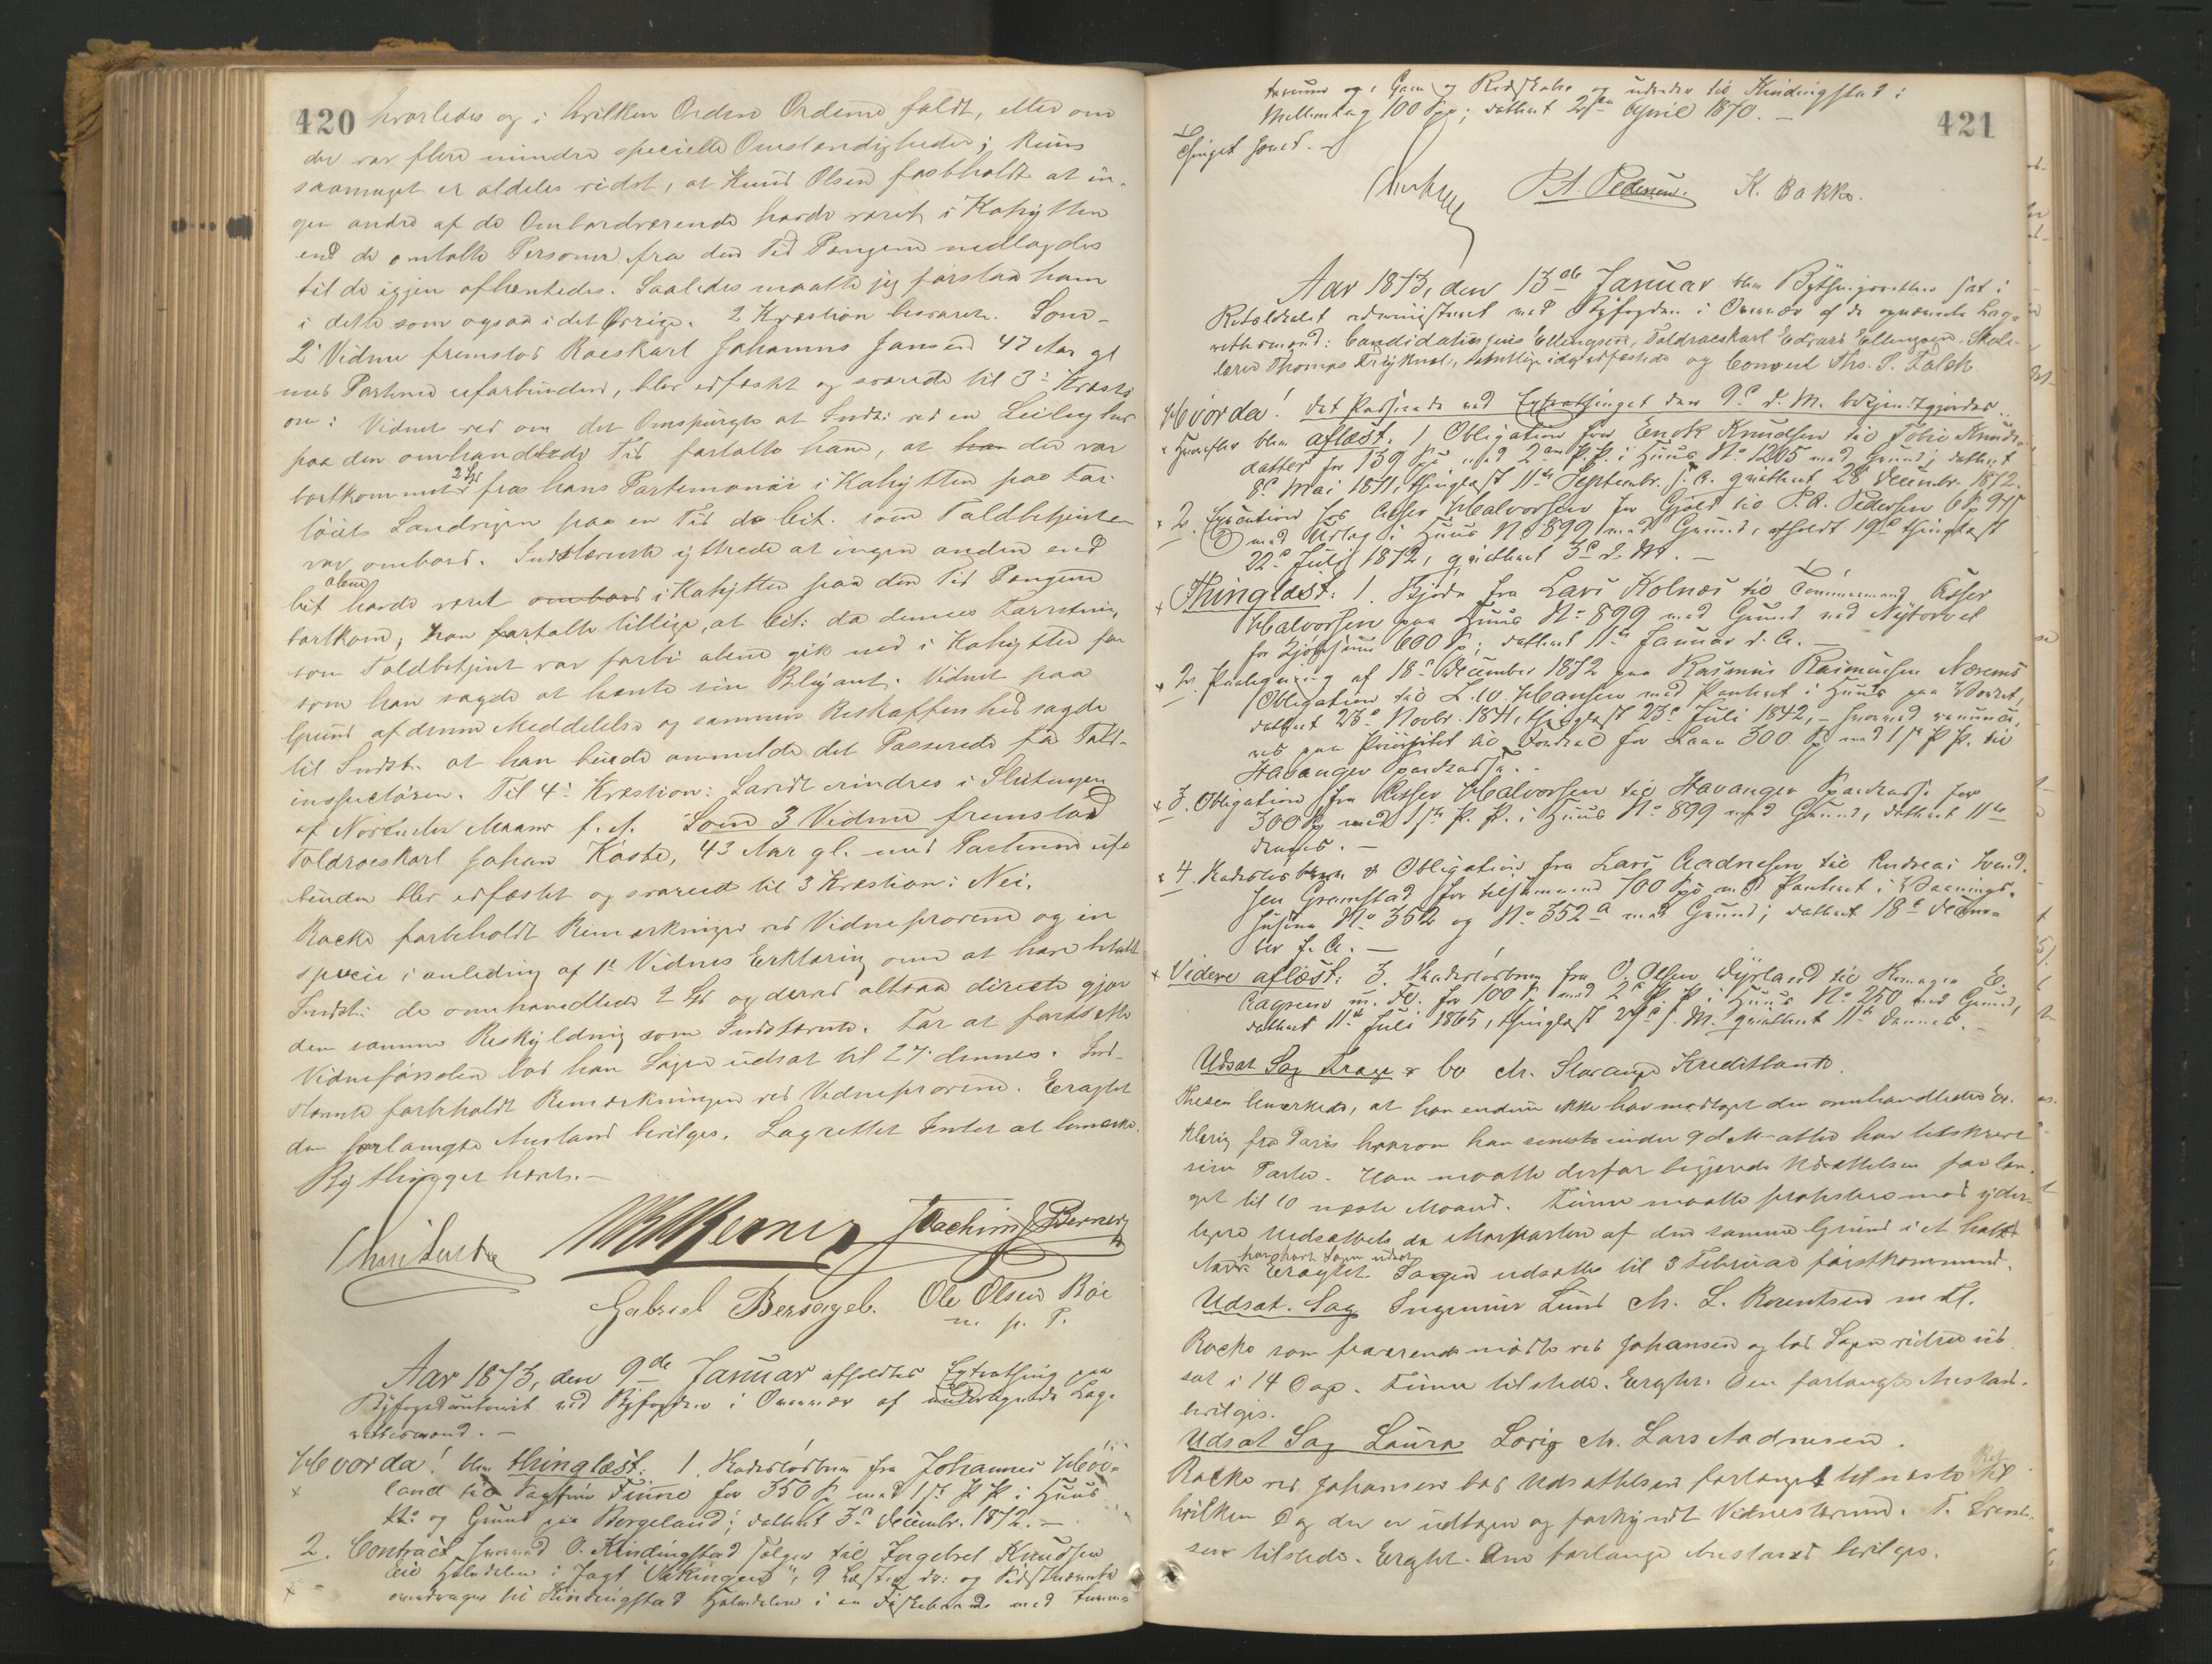 420
hvorledes og i hvilken Orden Ordene faldt, eller om
der var flere mindre specielle Omstændigheder; Kuns
saameget er aldeles vidst, at Knud Olsen fastholdt at in-
gen andre af de Ombordværende havde været i Kahytten
end de omtalte Personer fra den Tid Pengene nedlagdes
til de igjen afhentedes. Saaledes maatte jeg forstaa ham
i dette som ogsaa i det Øvrige. 2 Kvæstion besvaret. Som
2 Vidne fremstod Roeskarl Johannes Jansen 47 Aar gl
med Parterne uforbunden, blev edfæstet og svarede til 3: Kvæsti
on: Vidnet ved om det Omspurgte at Indst: ved en Leilighed
paa den omhandlede Tid fortalte ham, at han der var
bortkommet 2 Spd fra hans Portemonnai i Kahytten paa Far-
töiets Landreisen paa en Tid da Cit. som Toldbetjent
var ombord. Indstævnte yttrede at ingen anden end
Cit alene havde været ombord i Kahytten paa den Tid Pengene
bortkom; han fortalte tillige, at Cit: da dennes Forretning
som Toldbetjent var forbi alene gik ned i Kahytten for
som han sagde at hente sin Blyant. Vidnet paa
Grund af denne Meddelelse og sammes Beskaffenhed sagde
til Indst. at han burde anmelde det Passerede for Told-
inspectören. Til 4: Kvæstion: Savidt erindres i Slutningen
af November Maaned f. A. Som 3 Vidne fremstod
Toldroeskarl Johan Köste, 43 Aar gl. med Parterne ufor
bunden blev edfæstet og svarede til 3 Kvæstion: Nei.
Racke forbeholdt Bemærkninger ved Vidneprovene og in
specie i anledning af 1t Vidnes Erklæring om at have betalt
Indst: de omhandlede 2 Spd og derved altsaa directe gjør
den samme Beskyldning som Indstævnte. For at fortsætte
Vidneførselen bad han Sagen udsat til 27. dennes. Ind-
stævnte forbeholdt Bemærkninger ved Vidneprovene. Eragtet
den forlangte Anstand bevilges. Lagrettet Intet at bemærke.
Bythinget hævet.
Joachim Berner
Gabriel Bersagel. Ole Olsen Böe
m. p. P.
Aar 1873, den 9de Januar afholdtes Extrathing paa
Byfogedcontoret ved Byfogden i Overvær af undertegnede Lag-
rettesmænd. –
Hvorda! blev thinglæst: 1. Kadeslösbrev fra Johannes Hövi-
land til Fagfin Finne for 350 Sp med 1ste P. P. i Huus
No og Grund paa Bergeland; dateret 3de Decembr. 1872. –
2. Contract hvorved O. Kindingstad sælger til Ingebret Knudsen
Eie Halvdelen i Jagt Vikingen, 9 Læster dr: og Sidstnævnte
overdrager til Kindingstad Halvdelen i en Fiskebaad med Tom-
421
og Garn og Redskaber og udreder til Kindingstad i
Mellemlag 100 Spd; dateret 2den April 1870. –
Thinget hævet. –
P. A. Pedersen. K. Bakke.
Aar 1873, den 13de Januar blev Bythingsretten sat i
Retslokalet administreret ved Byfogden i Overvær af de opnævnte Lag-
rettesmænd: Candidatus juris Ellingsen, Toldroeskarl Edvard Ellingsen, Skole-
lærer Thomas , samtlige idag edfæstede og Consul Ths. S. Falck.
Hvorda! det Passerede ved Extrathinget den 9de d. M. bekjendtgjordes.
Derefter blev aflæst: 1 Obligation fra Enok Knudsen til Tobie Knuds-
datter for 139 Spd med 2den P. P. i Huus No 1205 med Grund; dateret
8de Mai 1871, thinglæst 11te Septembr. s. A. qvitteret 28de Decembr. 1872.
2. Execution hos Asser Halvorsen for Gjeld til P. A. Pedersen
med Udlæg i Huus No 899 med Grund, afholdt 19de thinglæst
22de Juli 1872, qvitteret 3de d. M. –
Thinglæst: 1. Skjøde fra Lars Kolnæs til Tömmermand Asser
Halvorsen paa Huus No 899 med Grund ved Nytorvet
for Kjøbesum 600 Sp; dateret 11te Januar d. A. –
2. Paategning af 18de December 1872 paa Rasmus Rasmussen Næsens
Obligation til L. W. Hansen med Panteret i Huus paa
dateret 23de Novbr. 1841, thinglæst 23de Juli 1842, – hvorved renunce-
res paa Prioritet til Fordeel for Laan 300 Sp med 1ste P. P. til
Stavanger Sparekasse. –
3. Obligation fra Asser Halvorsen til Stavanger Sparekasse for
300 Sp med 1ste P. P. i Huus No 899 med Grund, dateret 11te
dennes. –
4. Kadeslösbrev & Obligation fra Lars Aadnesen til Andreas Svend-
sen Gremstad for tilsammen 700 Spd med Panteret i Vaanings-
husene No 352 og No 352a med Grund; dateret 18de Decem-
ber f. A. –
Videre aflæst: 3. Skadeslösbrev fra O. Olsen Dyrland til E.
Aagesen m. Fl. for 100 Sp med 2den P. P. i Huus No 250 med Grund,
dateret 11te Juli 1865, thinglæst 27de s. M. qvitteret 11te dennes. –
Udsat Sag & Co Ctr. Stavanger Kreditbank.
Thesen bemærkede, at han endnu ikke har modtaget den omhandlede Er-
klæring fra Paris hvorom han senest under 9 d M atter har tilskrevet
sin Parter. Han maatte derfor begjære Udsættelsen forlæn-
get til 10 næste Maaned. Finne maatte protestere mod yder-
ligere Udsættelse da Modparten af den samme Grund i et halvt
Aar har havt Sagen udsat. Eragtet Sagen udsættes til 3 Februar førstkommend.
Udsat. Sag Ingeniør Lund Ctr. L. Berentsen m fl.
Racke som fraværende mødte ved Johansen og bad Sagen videre ud-
sat i 14 Dage. Finne tilstede. Eragtet: Den forlangte Anstand
bevilges.
Udsat Sag Laura Lovig Ctr. Lars Aadnesen.
Racke ved Johansen bad Udsættelsen forlænget til næste Ret til
hvilken Dag der er udtagen og forkyndt Vidnestævne.
tilstede. Eragtet. Den forlangte Anstand bevilges.